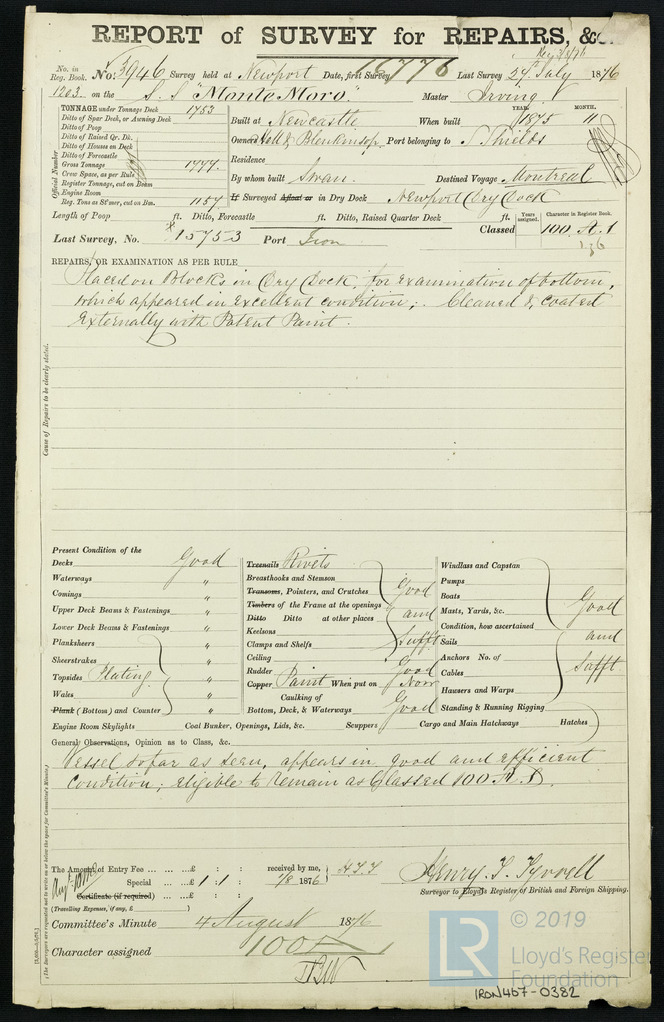 REPORT of SURVEY for REPAIRS, &c.
No. in Reg. Book. No. 5946 Survey held at Newport Date, first Survey 16776 Last Survey 24 July 1876
1203 on the S.S "Monte Moro" Master Irving
TONNAGE under Tonnage Deck 1753
Ditto of Spar Deck, or Awning Deck
Ditto of Poop
Ditto of Raised Qr. Dk.
Ditto of Houses on Deck
Ditto of Forecastle
Gross Tonnage 1777
Crew Space, as per Rule
Register Tonnage, cut on Beam
Engine Room
Reg. Tons as St'mer, cut on Bm. 1154
Official Number
Built at Newcastle When built YEAR. 1875 MONTH. 11
Owners Hall & Blenkinsop Port belonging to S Shields
Residence
By whom built Swan Destined Voyage Montreal
If Surveyed Afloat or in Dry Dock Newport Dry Dock
Length of Poop ft. Ditto, Forecastle ft. Ditto, Raised Quarter Deck ft.
Years assigned. Character in Register Book.
Last Survey, No. 15753 Port Iron Classed 100 A.1
REPAIRS, OR EXAMINATION AS PER RULE
Placed on Blocks in Dry Dock, for examination of bottom,
which appeared in Excellent condition; Cleaned & Coated
Externally with Patent Paint.
Cause of Repairs to be clearly stated.
Present Condition of the
Decks Good
Waterways "
Comings "
Upper Deck Beams & Fastenings "
Lower Deck Beams & Fastenings "
Planksheers "
Sheerstrakes "
Topsides Plating "
Wales "
Plank (Bottom) and Counter "
Treenails Rivets
Breasthooks and Stemson
Transoms, Pointers, and Crutches Good
Timbers of the Frame at the openings
Ditto Ditto at other places and
Keelsons
Clamps and Shelfs Sufft
Ceiling
Rudder Good
Copper Paint When put on Now
Caulking of
Bottom, Deck, & Waterways Good
Windlass and Capstan
Pumps
Boats
Masts, Yards, &c. Good
Condition, how ascertained
Sails and
Anchors No. of
Cables Sufft
Hausers and Warps
Standing & Running Rigging
Engine Room Skylights Coal Bunker, Openings, Lids, &c. Scuppers Cargo and Main Hatchways Hatches
General Observations, Opinion as to Class, &c.
Vessel so far as seen, appears in good and efficient
Condition; eligible to remain as Classed 100 A.1.
The Amount of Entry Fee ... ... £ : : received by me,
Special ... £ 1 : 1 : 1/8 1876
Certificate (if required) ... £ : :
(Travelling Expenses, if any, £ )
Henry. T. Tyrrell
Surveyor to Lloyd's Register of British and Foreign Shipping.
Committee's Minute 4 August 1876
Character assigned 100A1
(The Surveyors are requested not to write on or below the space for Committee's Minute.)
LR © 2019
Lloyd's Register
Foundation
IRON467-0382